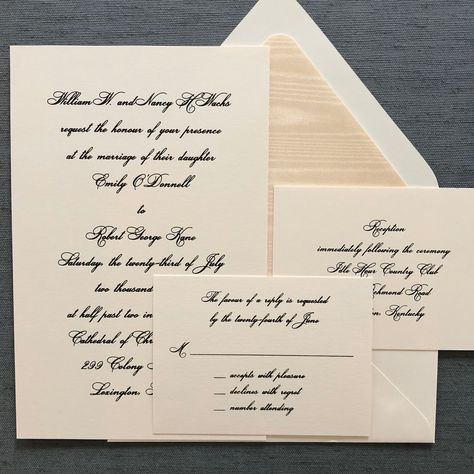 William W. and Nancy H Wachs
request the honour of your presence
at the marriage of their daughter
Emily O'Donnell
to
Robert George Kane
Saturday, the twenty-third of July
two thousand
at half past two in
Cathedral of
299 Colony
Lexington,
The favour of a reply is requested
by the twenty-fourth of June
M
accepts with pleasure
declines with regret
number attending
Reception
immediately following the ceremony
Idle Hour Country Club
Road
Kentucky